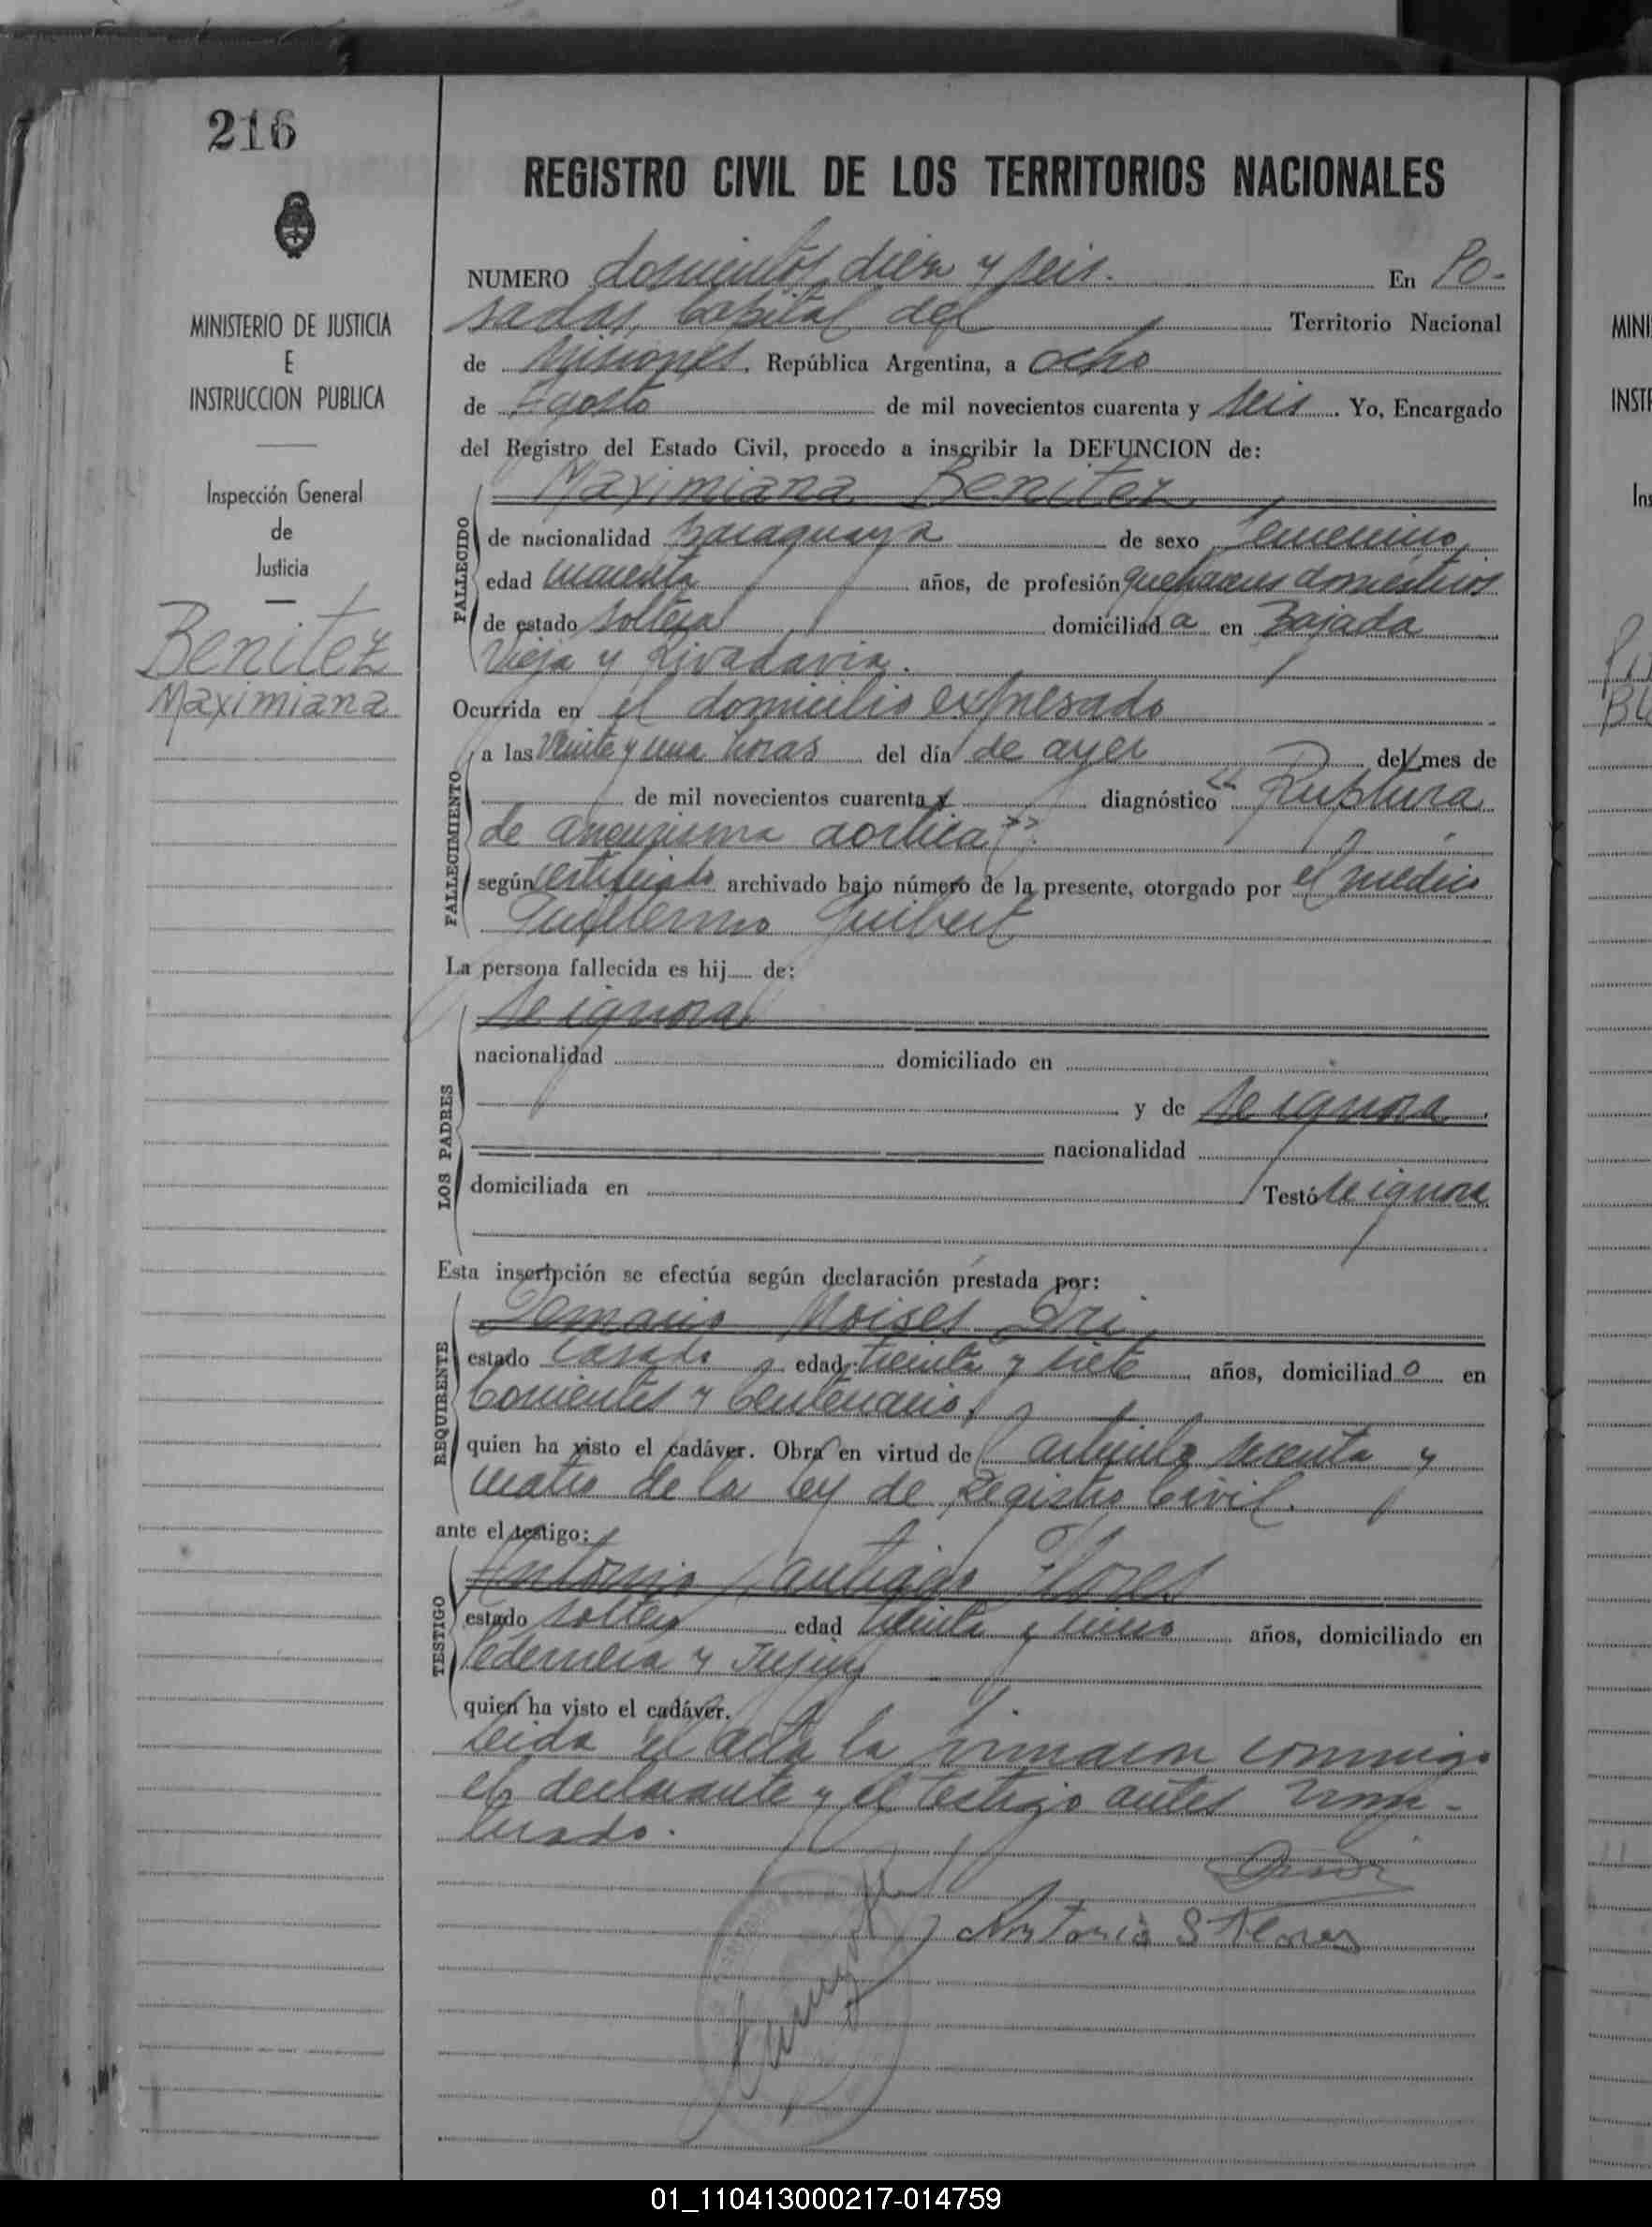 216
MINISTERIO DE JUSTICIA
E
INSTRUCCION PUBLICA
Inspección General
de
Justicia
Benitez
Maximiana
REGISTRO CIVIL DE LOS TERRITORIOS NACIONALES
NUMERO doscientos diez y seis. En Po-
sadas, Capital del Territorio Nacional
de Misiones, República Argentina, a ocho
de Agosto de mil novecientos cuarenta y seis. Yo, Encargado
del Registro del Estado Civil, procedo a inscribir la DEFUNCION de:
Maximiana Benitez
FALLECIDO
de nacionalidad paraguaya de sexo femenino
edad cuarenta años, de profesión quehaceres domésticos
de estado soltera domiciliada en Bajada
Vieja y Rivadavia.
Ocurrida en el domicilio expresado
FALLECIMIENTO
a las veinte y una horas del día de ayer del mes de
de mil novecientos cuarenta y diagnóstico "Ruptura
de aneurisma aortica".
según certificado archivado bajo número de la presente, otorgado por el médico
Guillermo Guibert
La persona fallecida es hij de:
LOS PADRES
Se ignora
nacionalidad domiciliado en
y de se ignora
nacionalidad
domiciliada en Testó se ignora
Esta inscripción se efectúa según declaración prestada por:
REQUIRENTE
Moises
estado casado edad treinta y siete años, domiciliado en
Corrientes y Centenario,
quien ha visto el cadáver. Obra en virtud de artículo sesenta y
cuatro de la ley de Registro Civil.
ante el testigo:
TESTIGO
Antonio Santiago Flores
estado soltero edad treinta y años, domiciliado en
Pedernera y Jujuy
quien ha visto el cadáver.
Leida el acta la firmaron conmigo
el declarante y el testigo antes nom-
brado.
Antonio S Flores
01_110413000217-014759